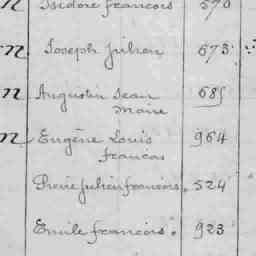 n Isidore francois 570
n Joseph Julien 673
n Augustin Jean 685
Marie
n Eugène Louis 964
francois
Pierre Julien francois. 524
Emile francois. 923